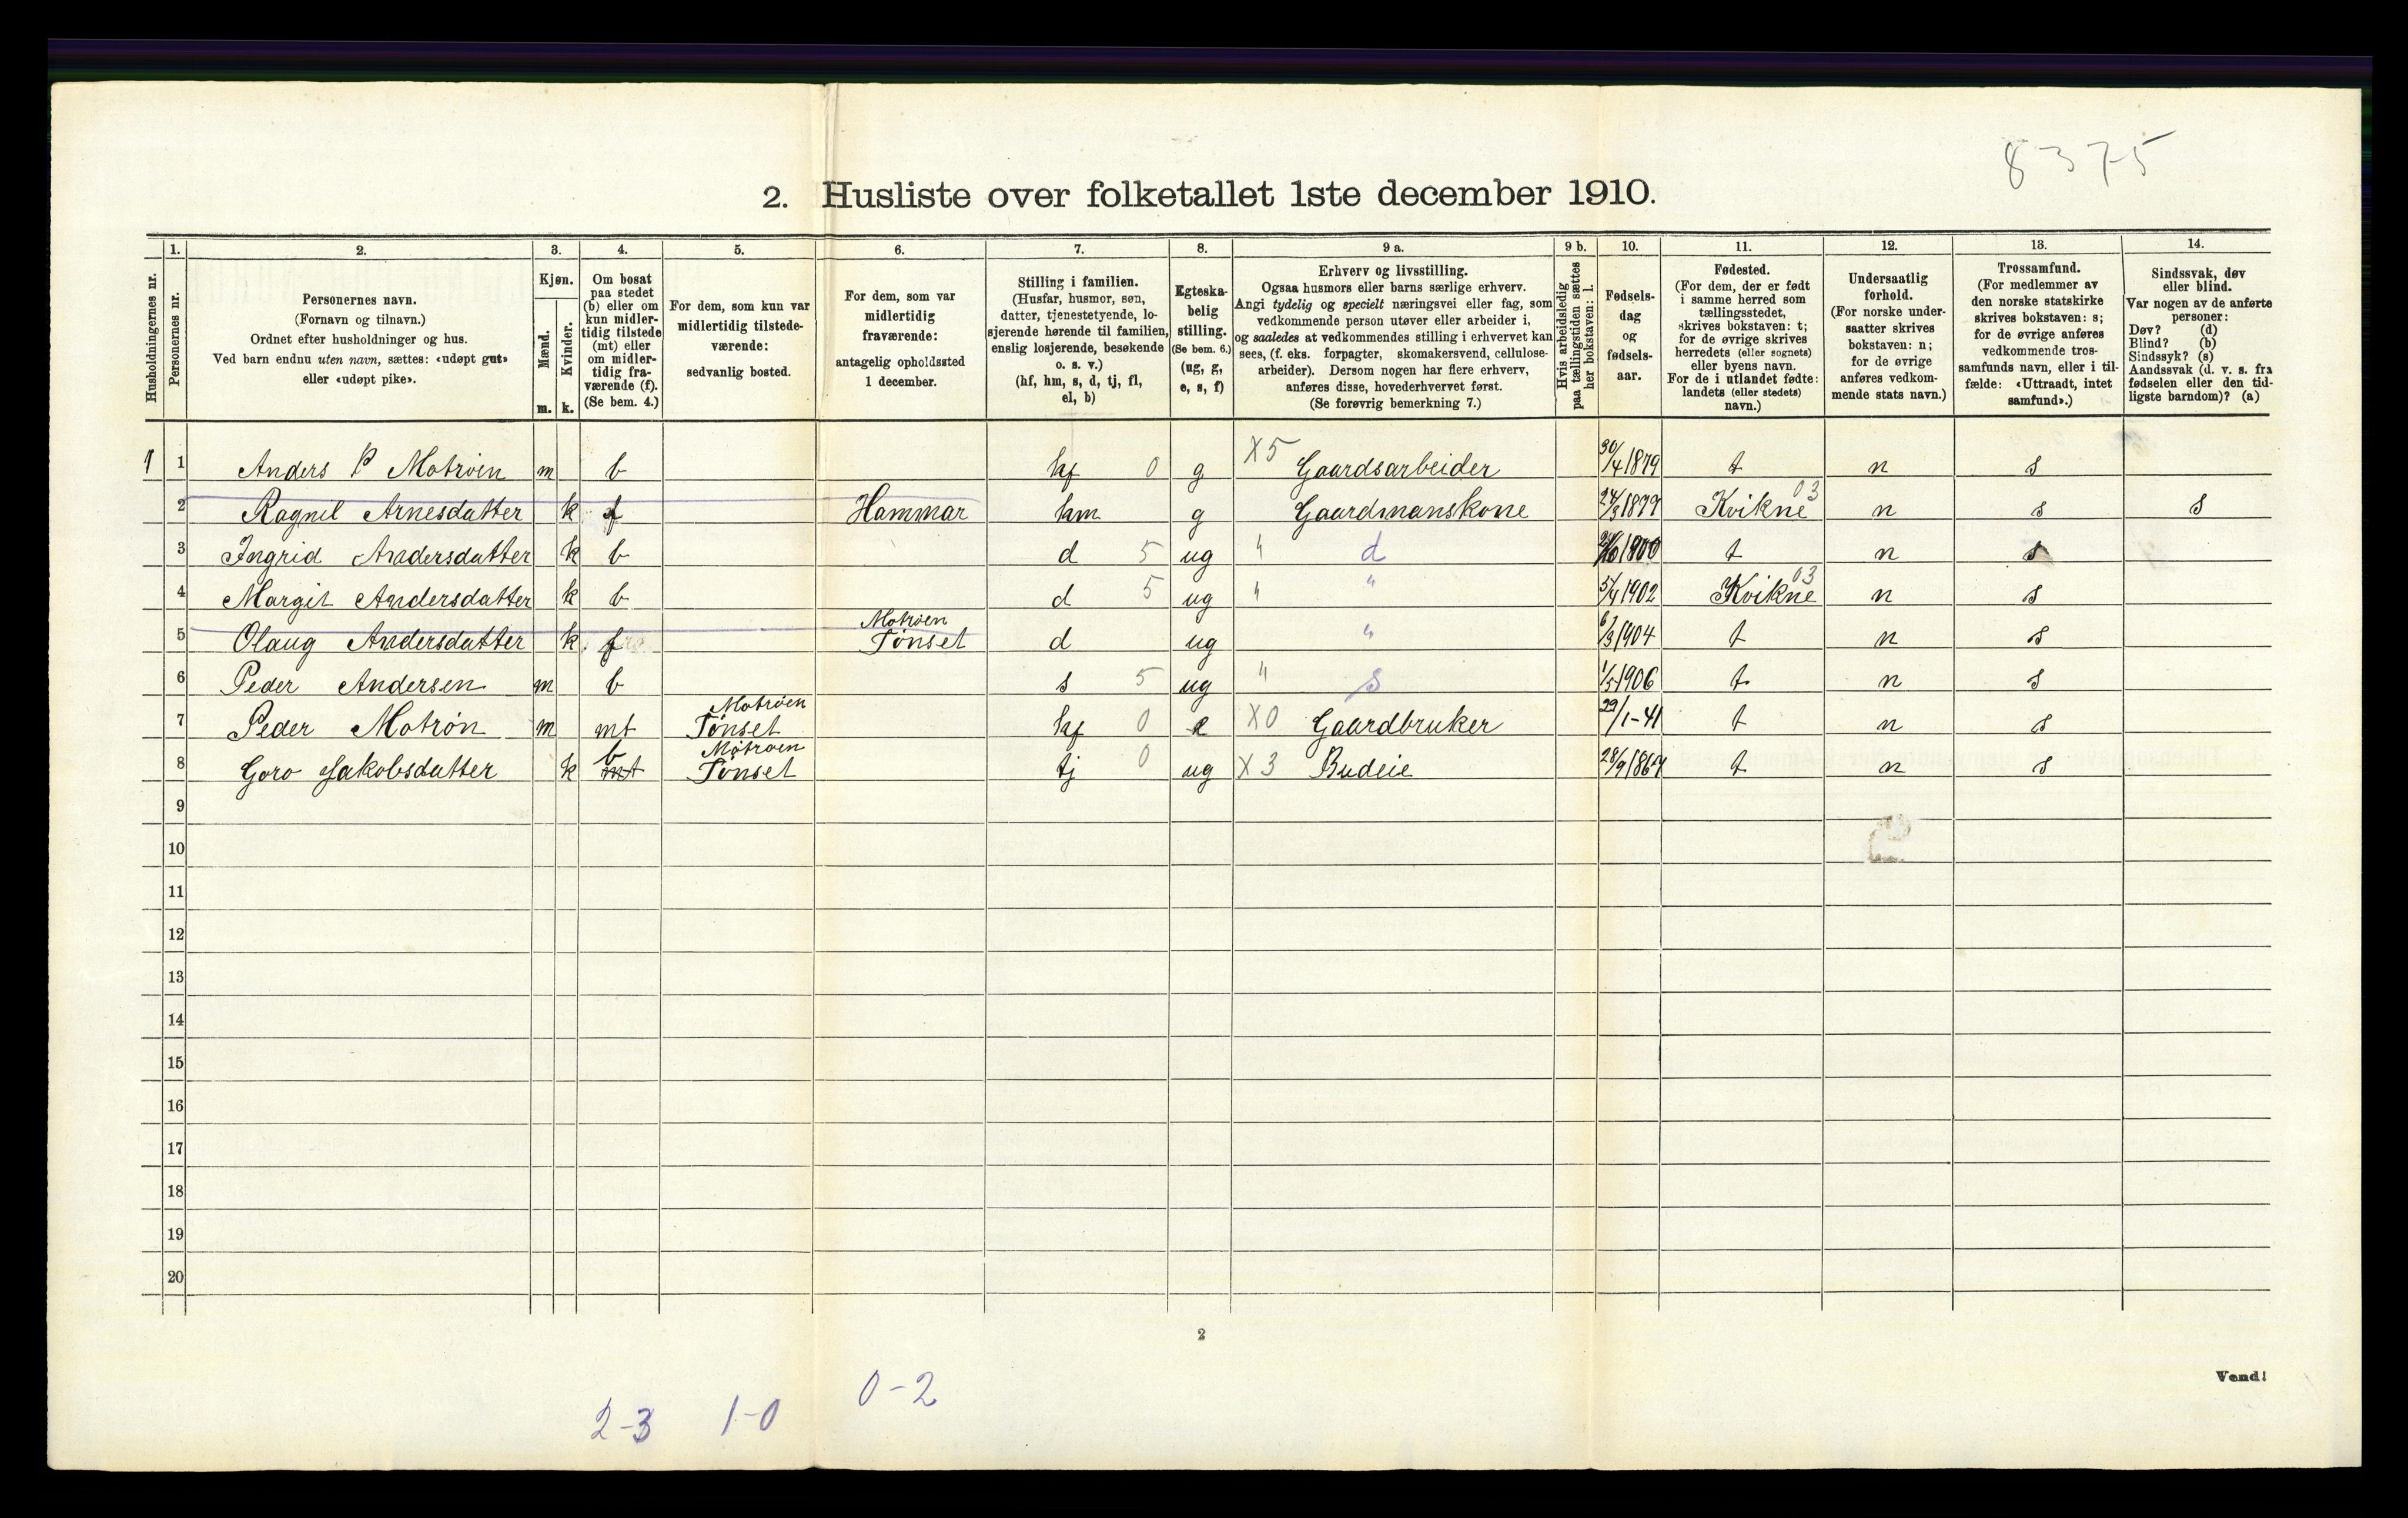 8375
2. Husliste over folketallet 1ste december 1910.
Husholdningernes nr.
1.
Personernes nr.
2.
Personernes navn.
(Fornavn og tilnavn.)
Ordnet efter husholdninger og hus.
Ved barn endnu uten navn, sættes: «udøpt gut»
eller «udøpt pike».
3.
Kjøn.
Mænd.
Kvinder.
m. k.
4.
Om bosat
paa stedet
(b) eller om
kun midler-
tidig tilstede
(mt) eller
om midler-
tidig fra-
værende (f).
(Se bem. 4.)
5.
For dem, som kun var
midlertidig tilstede-
værende:
sedvanlig bosted.
6.
For dem, som var
midlertidig
fraværende:
antagelig opholdssted
1 december.
7.
Stilling i familien.
(Husfar, husmor, søn,
datter, tjenestetyende, lo-
sjerende hørende til familien,
enslig losjerende, besøkende
o. s. v.)
(hf, hm, s, d, tj, fl,
el, b)
8.
Egteska-
belig
stilling.
(Se bem. 6.)
(ug, g,
e, s, f)
9 a.
Erhverv og livsstilling.
Ogsaa husmors eller barns særlige erhverv.
Angi tydelig og specielt næringsvei eller fag, som
vedkommende person utøver eller arbeider i,
og saaledes at vedkommendes stilling i erhvervet kan
sees, (f. eks. forpagter, skomakersvend, cellulose-
arbeider). Dersom nogen har flere erhverv,
anføres disse, hovederhvervet først.
(Se forøvrig bemerkning 7.)
9 b.
Hvis arbeidsledig
paa tællingstiden sættes
her bokstaven: l.
10.
Fødsels-
dag
og
fødsels-
aar.
11.
Fødested.
(For dem, der er født
i samme herred som
tællingsstedet,
skrives bokstaven: t;
for de øvrige skrives
herredets (eller sognets)
eller byens navn.
For de i utlandet fødte:
landets (eller stedets)
navn.)
12.
Undersaatlig
forhold.
(For norske under-
saatter skrives
bokstaven: n;
for de øvrige
anføres vedkom-
mende stats navn.)
13.
Trossamfund.
(For medlemmer av
den norske statskirke
skrives bokstaven: s;
for de øvrige anføres
vedkommende tros-
samfunds navn, eller i til-
fælde: «Uttraadt, intet
samfund».)
14.
Sindssvak, døv
eller blind.
Var nogen av de anførte
personer:
Døv? (d)
Blind? (b)
Sindssyk? (s)
Aandssvak (d. v. s. fra
fødselen eller den tid-
ligste barndom)? (a)
1 1 Anders P Motrøen m b hf 0 g X5 Gaardsarbeider 30/4 1879 t n s
2 Ragnil Arnesdatter k f Hammar hm g Gaardmanskone 24/3 1879 Kvikne 03 n s s
3 Ingrid Andersdatter k b d 5 ug " d 1900 t n s
4 Margit Andersdatter k b d 5 ug " " 5/4 1902 Kvikne 03 n s
5 Olaug Andersdatter k f Motrøen Tønset d ug " 6/3 1904 t n s
6 Peder Andersen m b s 5 ug " s 1/5 1906 t n s
7 Peder Motrøn m mt Motrøen Tønset hf 0 e X0 Gaardbruker 29/1-41 t n s
8 Goro Jakobsdatter k b mt Motroen Tønset tj 0 ug X3 Budeie 28/9 1867 t n s
9
10
11
12
13
14
15
16
17
18
19
20
2
Vend!
2-3 1-0 0-2